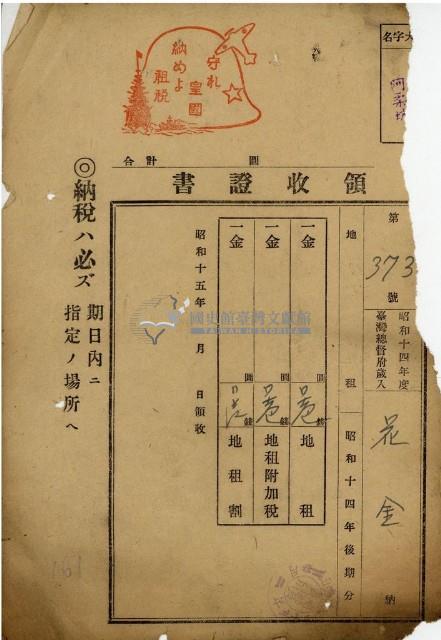 守れ
皇國
納めよ
租税
大字名
阿罩
合計 圓
領收證書
第 373 號
昭和十四年度
臺灣總督府歲入
花金 納
地租 昭和十四年後期分
一金 圓 錢 地租
一金 圓 錢 地租附加税
一金 圓 錢 地租割
昭和十五年 月 日領收
◎納税ハ必ズ
期日內ニ
指定ノ場所へ
國史館臺灣文獻館
TAIWAN HISTORICA
161